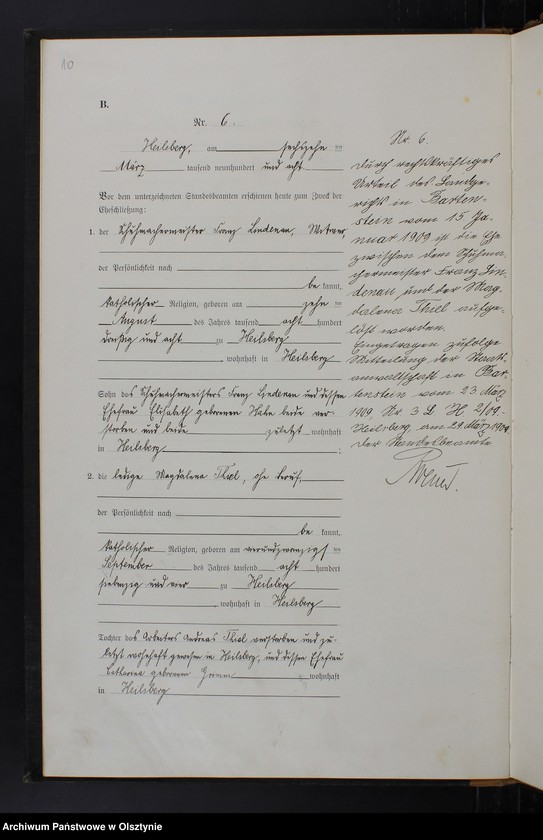 10
B.
Nr. 6.
Heilsberg, am sechszehn ten
März tausend neunhundert und acht
Vor dem unterzeichneten Standesbeamten erschienen heute zum Zweck der
Eheschließung:
1. der Schuhmachermeister Franz Lindenau, Witwer,
der Persönlichkeit nach
be kannt,
katholischer Religion, geboren am zehn ten
August des Jahres tausend acht hundert
dreißig und acht zu Heilsberg
, wohnhaft in Heilsberg
Sohn des Schuhmachermeisters Franz Lindenau und dessen
Ehefrau Elisabeth geborenen beide ver-
storben und beide zuletzt wohnhaft
in Heilsberg ;
2. die ledige Magdalena Thiel, ohne Beruf,
der Persönlichkeit nach
be kannt,
katholischer Religion, geboren am vierundzwanzigs ten
September des Jahres tausend acht hundert
siebenzig und vier zu Heilsberg
, wohnhaft in Heilsberg
Tochter des Arbeiters Andreas Thiel verstorben und zu-
letzt wohnhaft gewesen in Heilsberg, und dessen Ehefrau
Catharina geborenen wohnhaft
in Heilsberg
Nr. 6.
Durch rechtskräftiges
Urteil des Landge-
richts in Barten-
stein vom 15 Ja-
nuar 1909 ist die Ehe
zwischen dem Schuhma-
chermeister Franz Lin-
denau und der Mag-
dalena Thiel aufge-
löst worden.
Eingetragen zufolge
Mitteilung der Staats-
anwaltschaft in Bar-
tenstein vom 23. März
1909, Nr 3 L H 2/09.
Heilsberg, am 29 März 1909
Der Standesbeamte
Archiwum Państwowe w Olsztynie